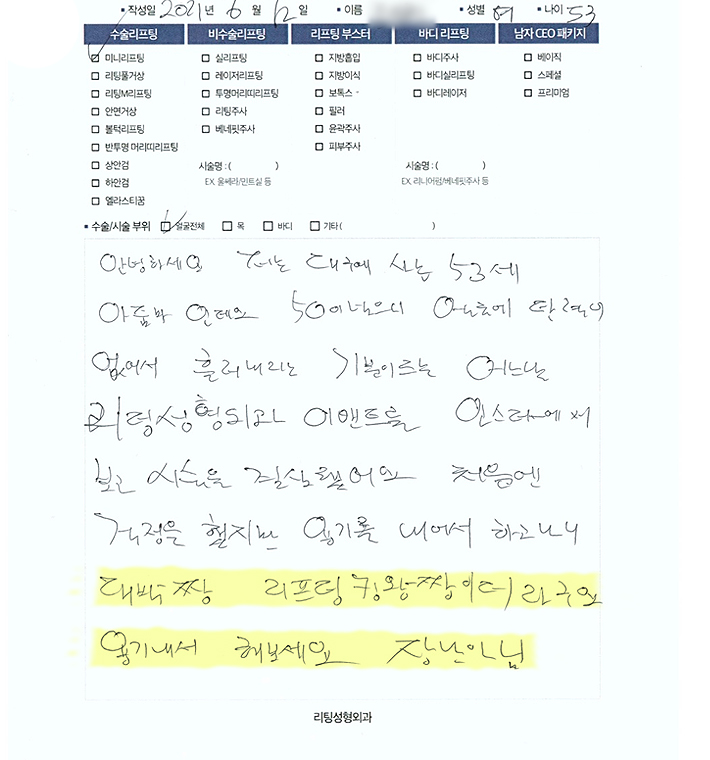 작성일 2021년 6월 12일 이름 성별 여 나이 53
수술리프팅 비수술리프팅 리프팅 부스터 바디 리프팅 남자 CEO 패키지
미니리프팅 실리프팅 지방흡입 바디주사 베이직
리팅풀거상 레이저리프팅 지방이식 바디실리프팅 스페셜
리팅M리프팅 투명머리띠리프팅 보톡스 바디레이저 프리미엄
안면거상 리팅주사 필러
볼턱리프팅 베네핏주사 윤곽주사
반투명 머리띠리프팅 피부주사
상안검 시술명 : ( ) 시술명 : ( )
하안검 EX. 울쎄라/민트실 등 EX. 리니어펌/베네핏주사 등
엘라스티꿈
수술/시술 부위 얼굴전체 목 바디 기타 ( )
안녕하세요 저는 대구에 사는 53세
아줌마 인데요 50이넘으니 얼굴에 탄력이
없어서 흘러내리는 기분이드는 어느날
리팅성형외과 이벤트를 인스타에서
보고 시술을 결심했어요 처음엔
걱정은 했지만 용기를 내어서 하고나니
대박 짱 리프팅 킹왕짱이더라구요
용기내서 해보세요 장난아님
리팅성형외과